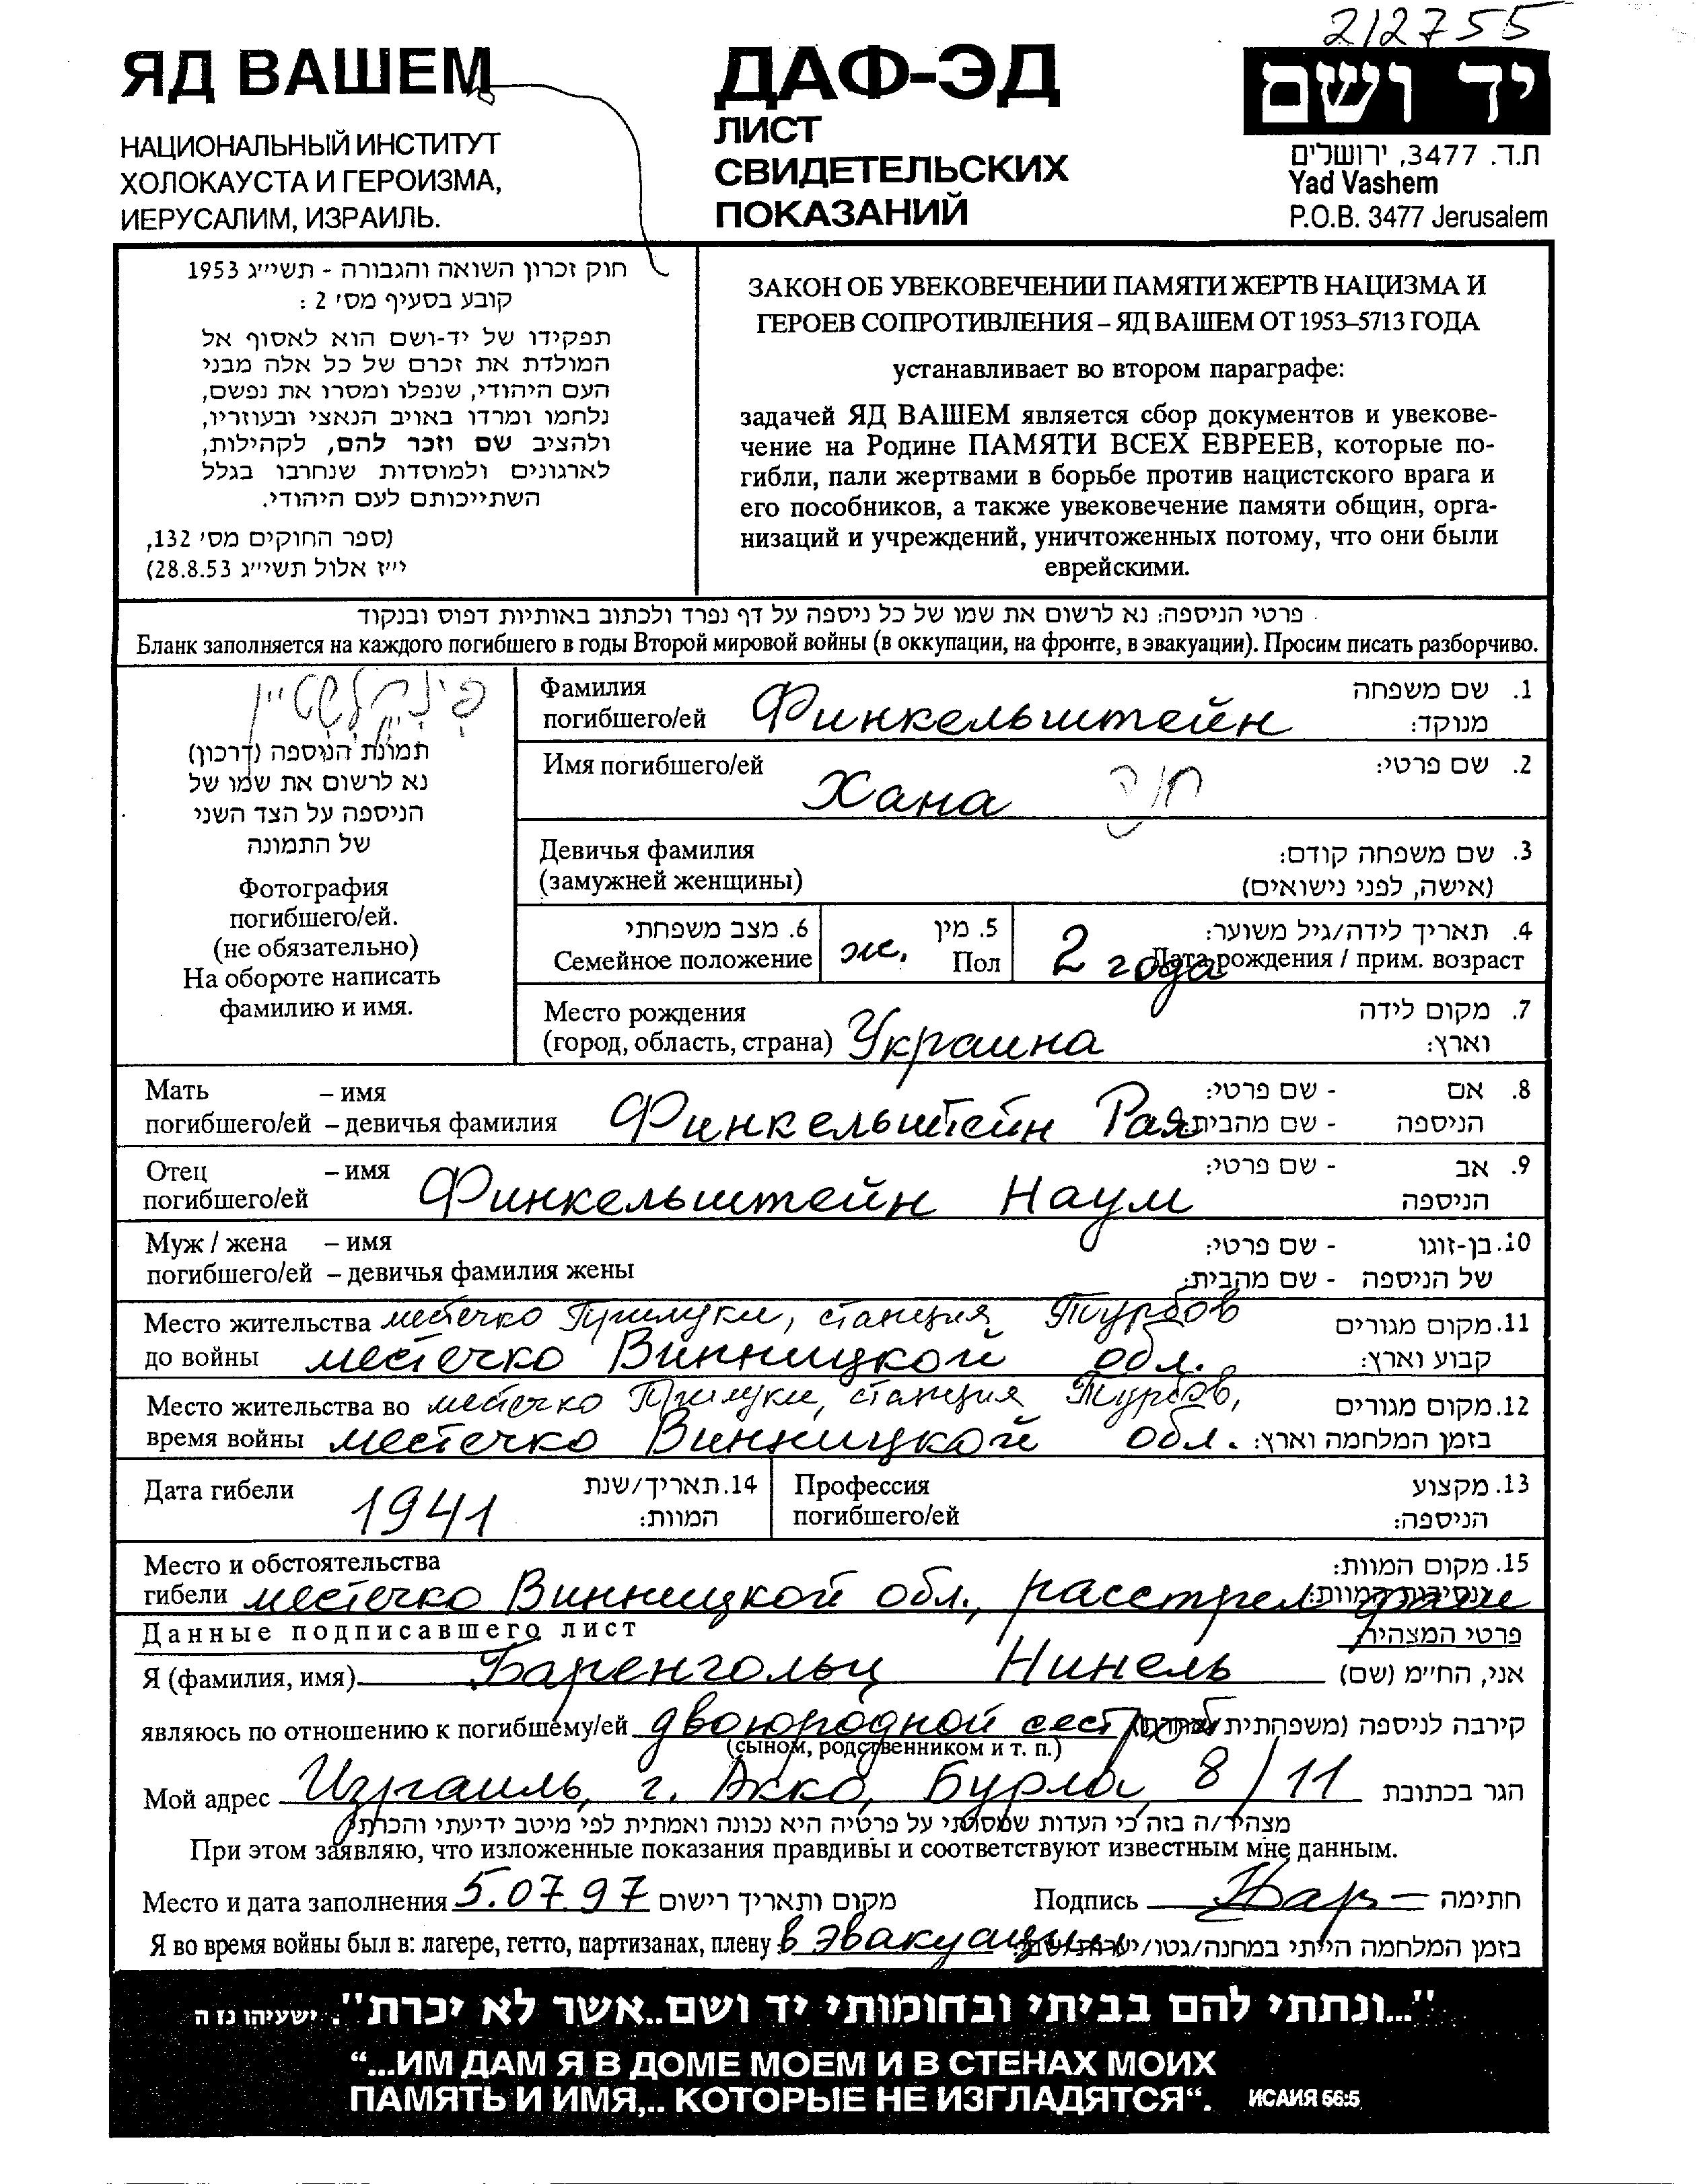 212755
ЯД ВАШЕМ
НАЦИОНАЛЬНЫЙ ИНСТИТУТ
ХОЛОКАУСТА И ГЕРОИЗМА,
ИЕРУСАЛИМ, ИЗРАИЛЬ.
ДАФ-ЭД
ЛИСТ
СВИДЕТЕЛЬСКИХ
ПОКАЗАНИЙ
יד ושם
ת.ד. 3477, ירושלים
Yad Vashem
P.O.B. 3477 Jerusalem
חוק זכרון השואה והגבורה - תשי״ג 1953
קובע בסעיף מס׳ 2 :
תפקידו של יד-ושם הוא לאסוף אל
המולדת את זכרם של כל אלה מבני
העם היהודי, שנפלו ומסרו את נפשם,
נלחמו ומרדו באויב הנאצי ובעוזריו,
ולהציב שם וזכר להם, לקהילות,
לארגונים ולמוסדות שנחרבו בגלל
השתייכותם לעם היהודי.
(ספר החוקים מס׳ 132,
י״ז אלול תשי״ג 28.8.53)
ЗАКОН ОБ УВЕКОВЕЧЕНИИ ПАМЯТИ ЖЕРТВ НАЦИЗМА И
ГЕРОЕВ СОПРОТИВЛЕНИЯ – ЯД ВАШЕМ ОТ 1953–5713 ГОДА
устанавливает во втором параграфе:
задачей ЯД ВАШЕМ является сбор документов и увекове-
чение на Родине ПАМЯТИ ВСЕХ ЕВРЕЕВ, которые по-
гибли, пали жертвами в борьбе против нацистского врага и
его пособников, а также увековечение памяти общин, орга-
низаций и учреждений, уничтоженных потому, что они были
еврейскими.
פרטי הניספה: נא לרשום את שמו של כל ניספה על דף נפרד ולכתוב באותיות דפוס ובנקוד
Бланк заполняется на каждого погибшего в годы Второй мировой войны (в оккупации, на фронте, в эвакуации). Просим писать разборчиво.
פינקלשטיין
תמונת הניספה (דרכון)
נא לרשום את שמו של
הניספה על הצד השני
של התמונה
Фотография
погибшего/ей.
(не обязательно)
На обороте написать
фамилию и имя.
Фамилия
погибшего/ей Финкельштейн
1. שם משפחה
מנוקד:
Имя погибшего/ей Хана חנה
2. שם פרטי:
Девичья фамилия
(замужней женщины)
3. שם משפחה קודם:
(אישה, לפני נישואים)
6. מצב משפחתי
Семейное положение
5. מין
ж. Пол
4. תאריך לידה/גיל משוער:
2 года Дата рождения / прим. возраст
Место рождения
(город, область, страна) Украина
7. מקום לידה
וארץ:
Мать – имя
погибшего/ей – девичья фамилия Финкельштейн Рая
8. אם - שם פרטי:
הניספה - שם מהבית:
Отец – имя
погибшего/ей Финкельштейн Наум
9. אב - שם פרטי:
הניספה
Муж / жена – имя
погибшего/ей – девичья фамилия жены
10. בן-זוגו - שם פרטי:
של הניספה - שם מהבית:
Место жительства местечко Прилуки, станция Турбов
до войны местечко Винницкой обл.
11. מקום מגורים
קבוע וארץ:
Место жительства во местечко Прилуки, станция Турбов,
время войны местечко Винницкой обл.
12. מקום מגורים
בזמן המלחמה וארץ:
Дата гибели 1941
14. תאריך/שנת
המוות:
Профессия
погибшего/ей
13. מקצוע
הניספה:
Место и обстоятельства
гибели местечко Винницкой обл., расстрел
15. מקום המוות:
Данные подписавшего лист
פרטי המצהיר
Я (фамилия, имя) Баренгольц Нинель אני, הח״מ (שם)
являюсь по отношению к погибшему/ей двоюродной сестрой קירבה לניספה (משפחתית
(сыном, родственником и т. п.)
Мой адрес Израиль, г. Акко, Бурла, 8/11 הגר בכתובת
מצהיר/ה בזה כי העדות שמסרתי על פרטיה היא נכונה ואמתית לפי מיטב ידיעתי והכרתי
При этом заявляю, что изложенные показания правдивы и соответствуют известным мне данным.
Место и дата заполнения 5.07.97 מקום ותאריך רישום Подпись חתימה
Я во время войны был в: лагере, гетто, партизанах, плену в эвакуации בזמן המלחמה הייתי במחנה/גטו/
"...ונתתי להם בביתי ובחומותי יד ושם..אשר לא יכרת". ישעיהו נו ה
“...ИМ ДАМ Я В ДОМЕ МОЕМ И В СТЕНАХ МОИХ
ПАМЯТЬ И ИМЯ,.. КОТОРЫЕ НЕ ИЗГЛАДЯТСЯ“. ИСАИЯ 56:5